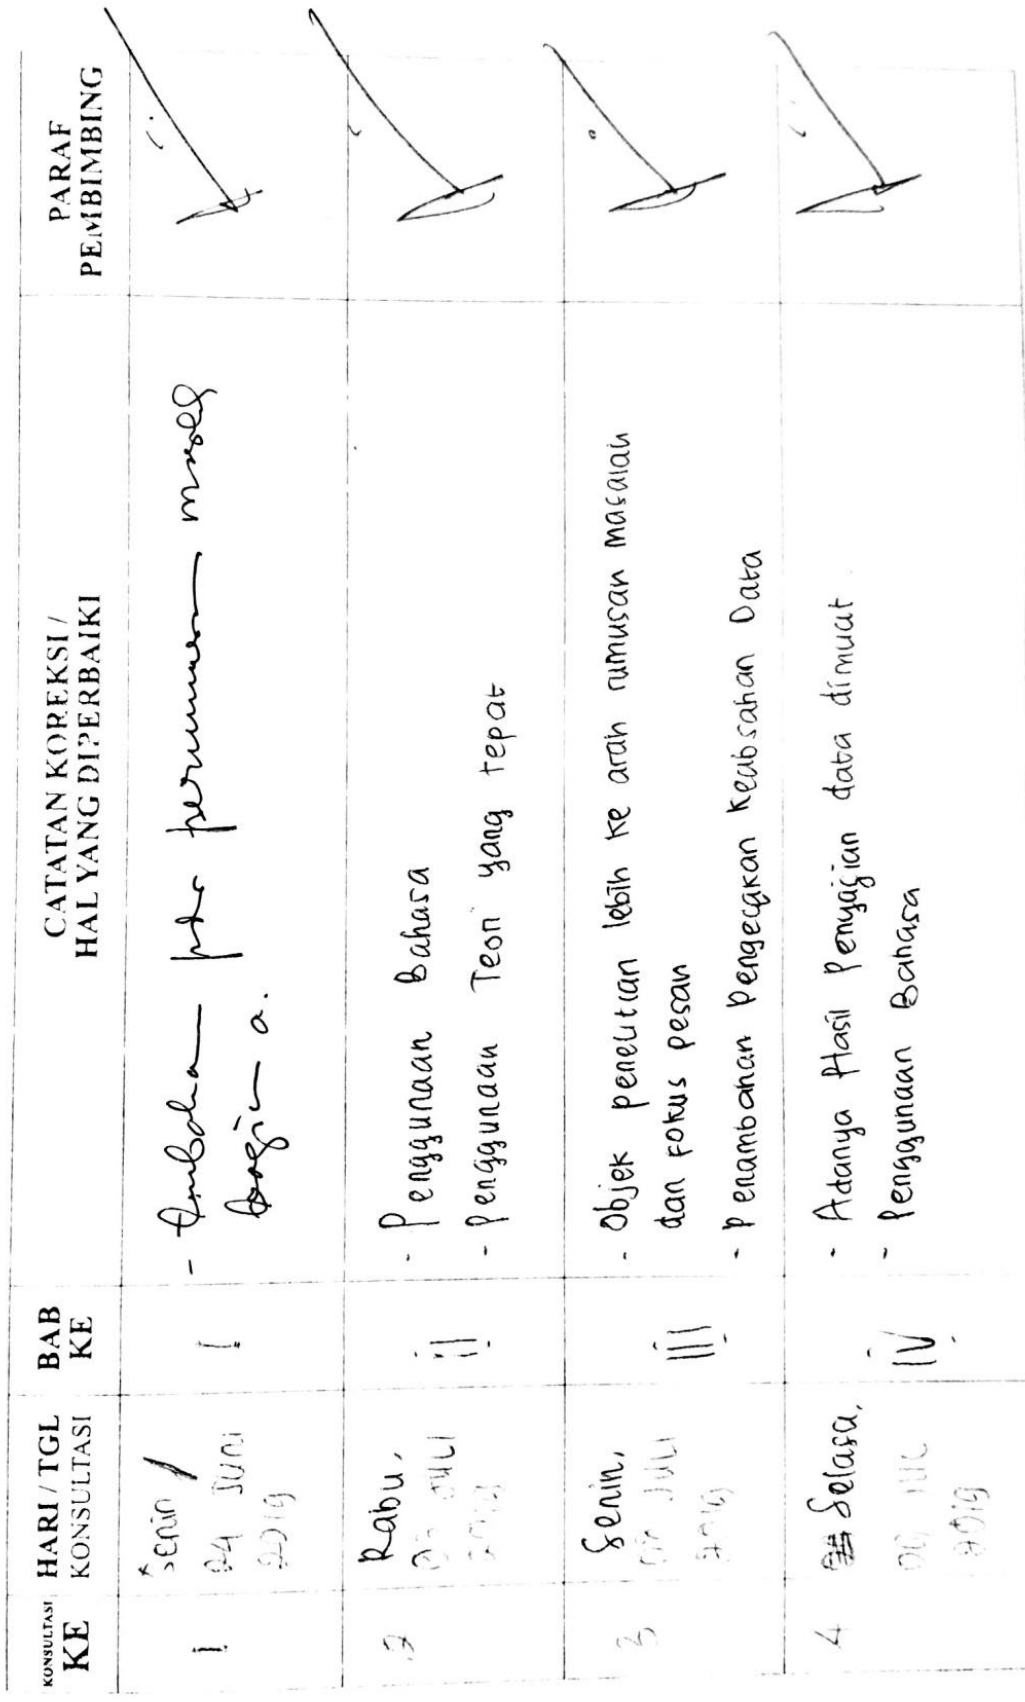 KONSULTASI
KE
HARI / TGL
KONSULTASI
BAB
KE
CATATAN KOREKSI /
HAL YANG DIPERBAIKI
PARAF
PEMBIMBING
1
Senin /
24 Juni
2019
I
-
bagian a.
2
Rabu,
Juli
2019
II
- Penggunaan Bahasa
- Penggunaan Teori yang tepat
3
Senin,
Juli
2019
III
- Objek penelitian lebih ke arah rumusan masalah
dan Fokus pesan
- Penambahan Pengecekan Keabsahan Data
4
Selasa,
2019
IV
- Adanya Hasil Penyajian data dimuat
- Penggunaan Bahasa